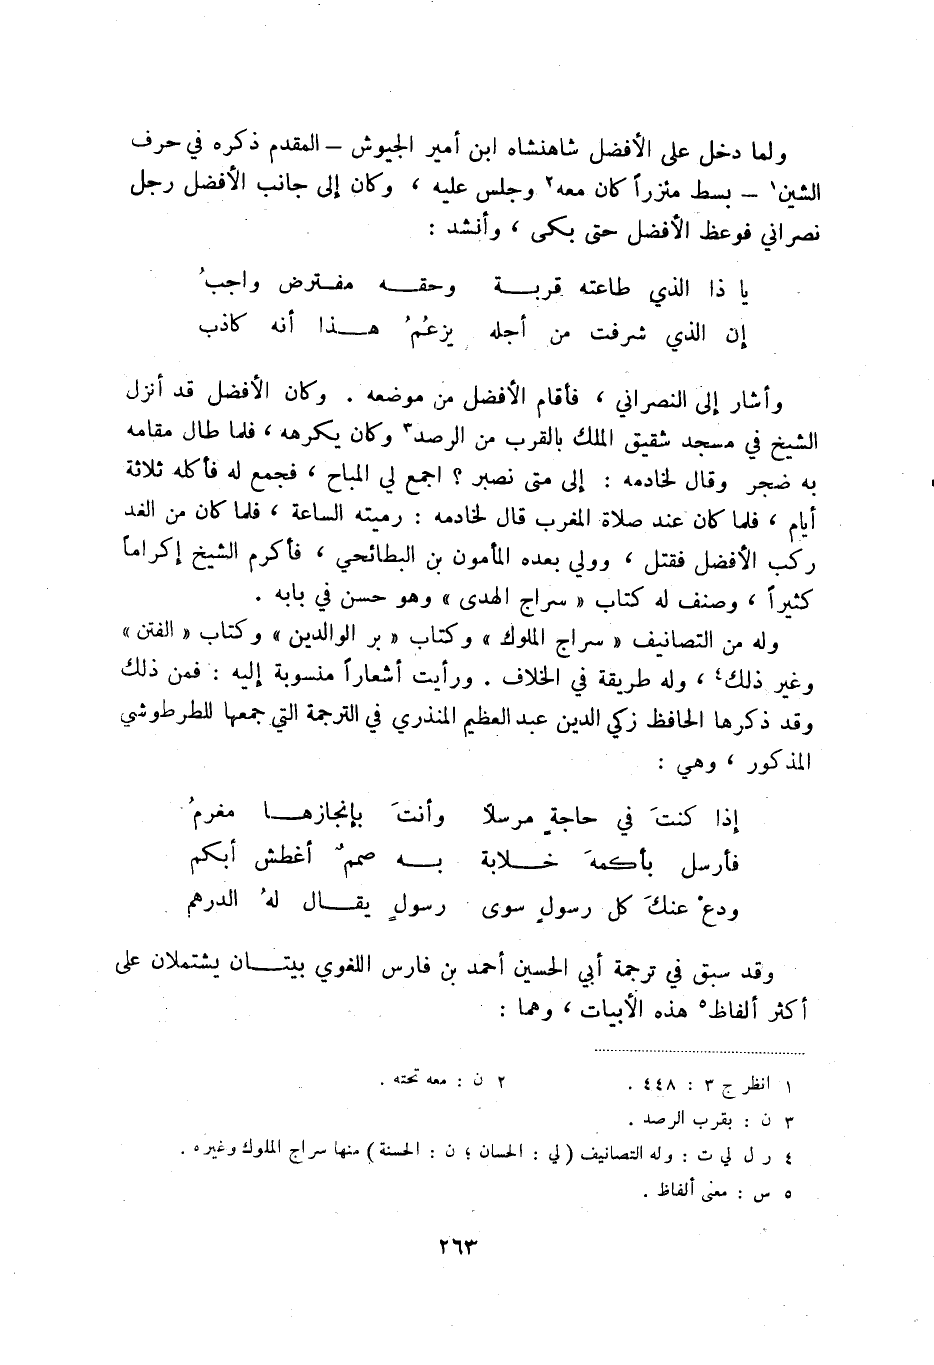 ولما دخل على الأفضل شاهنشاه ابن أمير الجيوش – المقدم ذكره في حرف
الشين١ – بسط مئزراً كان معه٢ وجلس عليه ، وكان إلى جانب الأفضل رجل
نصراني فوعظ الأفضل حتى بكى ، وأنشد :
يا ذا الذي طاعته قربـــة وحقـــه مفـترض واجبُ
إن الذي شرفت من أجله يزعُمُ هـــذا أنه كاذب
وأشار إلى النصراني ، فأقام الأفضل من موضعه . وكان الأفضل قد أنزل
الشيخ في مسجد شقيق الملك بالقرب من الرصد٣ وكان يكرهه ، فلما طال مقامه
به ضجر وقال لخادمه : إلى متى نصبر ؟ اجمع لي المباح ، فجمع له فأكله ثلاثة
أيام ، فلما كان عند صلاة المغرب قال لخادمه : رميته الساعة ، فلما كان من الغد
ركب الأفضل فقتل ، وولي بعده المأمون بن البطائحي ، فأكرم الشيخ إكراماً
كثيراً ، وصنف له كتاب « سراج الهدى » وهو حسن في بابه .
وله من التصانيف « سراج الملوك » وكتاب « بر الوالدين » وكتاب « الفتن »
وغير ذلك٤ ، وله طريقة في الخلاف . ورأيت أشعاراً منسوبة إليه : فمن ذلك
وقد ذكرها الحافظ زكي الدين عبد العظيم المنذري في الترجمة التي جمعها للطرطوشي
المذكور ، وهي :
إذا كنتَ في حاجةٍ مرسلاً وأنتَ بإنجازهـــا مغرمُ
فأرسل بأكمهَ خـــلابة بـــه صممٌ أغطش أبكم
ودعْ عنكَ كل رسولٍ سوى رسولٍ يقـــال لهُ الدرهم
وقد سبق في ترجمة أبي الحسين أحمد بن فارس اللغوي بيتـــان يشتملان على
أكثر ألفاظ٥ هذه الأبيات ، وهما :
١ انظر ج ٣ : ٤٤٨ . ٢ ن : معه تحته .
٣ ن : بقرب الرصد .
٤ ر ل لي ت : وله التصانيف ( لي : الحسان ؛ ن : الحسنة ) منها سراج الملوك وغيره .
٥ س : معنى ألفاظ .
٢٦٣